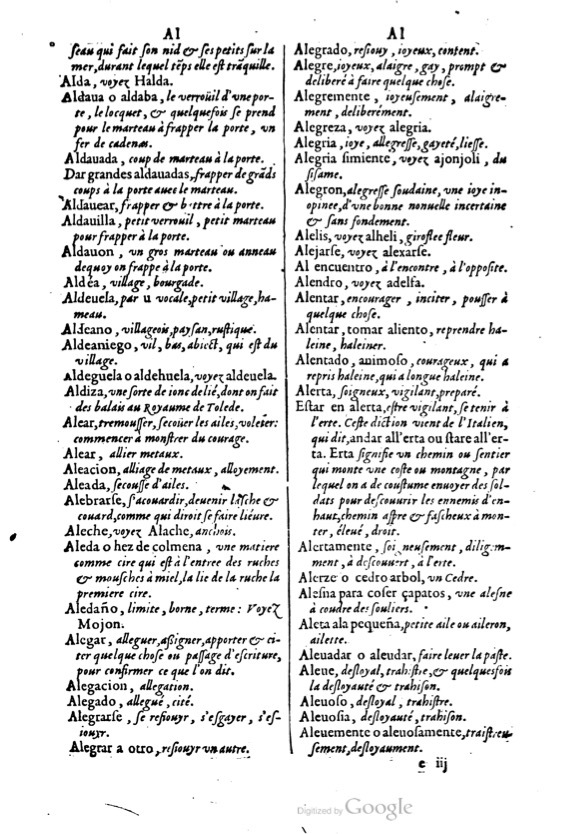 Al
ſeau qui fait ſon nid & ſes petits ſur la
mer, durant lequel tẽps elle eſt trãquille.
Alda, voyez Halda.
Aldaua o aldaba, le verroüil d'vne por-
te, le locquet, & quelquefois ſe prend
pour le marteau à frapper la porte, un
fer de cadenas.
Aldauada, coup de marteau à la porte.
Dar grandes aldauadas, frapper de grãds
coups à la porte auec le marteau.
Aldauear, frapper & battre à la porte.
Aldauilla, petit verrouil, petit marteau
pour frapper à la porte.
Aldauon, un gros marteau ou anneau
dequoy on frappe à la porte.
Aldéa, village, bourgade.
Aldeuela, par u vocale, petit village, ha-
meau.
Aldeano, villageois, payſan, ruſtique.
Aldeaniego, vil, bas, abiect, qui eſt du
village.
Aldeguela o aldehuela, voyez aldeuela.
Aldiza, vne ſorte de ionc delié, dont on fait
des balais au Royaume de Tolede.
Alear, tremouſſer, ſecoüer les ailes, voleter:
commencer à monſtrer du courage.
Alear, allier metaux.
Aleacion, alliage de metaux, alloyement.
Aleada, ſecouſſe d'ailes.
Alebrarſe, s'acouardir, deuenir laſche &
couard, comme qui diroit ſe faire liéure.
Aleche, voyez Alache, anchois.
Aleda o hez de colmena, une matiere
comme cire qui eſt à l'entree des ruches
& mouſches à miel, la lie de la ruche la
premiere cire.
Aledaño, limite, borne, terme: Voyez
Mojon.
Alegar, alleguer, aſſigner, apporter & ci-
ter quelque choſe ou paſſage d'eſcriture,
pour confirmer ce que l'on dit.
Alegacion, allegation.
Alegado, allegué, cité.
Alegrarſe, ſe reſiouyr, s'eſgayer, s'eſ-
iouyr.
Alegrar a otro, reſiouyr vn autre.
Al
Alegrado, reſiouy, ioyeux, content.
Alegre, ioyeux, alaigre, gay, prompt &
deliberé à faire quelque choſe.
Alegremente, ioyeuſement, alaigre-
ment, deliberément.
Alegreza, voyez alegria.
Alegria, ioye, allegreſſe, gayeté, lieſſe.
Alegria ſimiente, voyez ajonjoli, du
ſiſame.
Alegron, alegreſſe ſoudaine, vne ioye in-
opinee, d'vne bonne nouuelle incertaine
& ſans fondement.
Alelis, voyez alheli, giroflee fleur.
Alejarſe, voyez alexarſe.
Al encuentro, à l'encontre, à l'oppoſite.
Alendro, voyez adelfa.
Alentar, encourager, inciter, pouſſer à
quelque choſe.
Alentar, tomar aliento, reprendre ha-
leine, haleiner.
Alentado, animoſo, courageux, qui a
repris haleine, qui a longue haleine.
Alerta, ſoigneux, vigilant, preparé.
Eſtar en alerta, eſtre vigilant, ſe tenir à
l'erte. Ceſte diction vient de l'Italien,
qui dit, andar all'erta ou ſtare all'er-
ta. Erta ſignifie un chemin ou ſentier
qui monte vne coſte ou montagne, par
lequel on a de couſtume enuoyer des ſol-
dats pour deſcouurir les ennemis d'en-
haut, chemin aſpre & faſcheux à mon-
ter, éleué, droit.
Alertamente, ſoigneuſement, diligem-
ment, à deſcouuert, à l'erte.
Alerze o cedro arbol, vn Cedre.
Aleſna para coſer çapatos, vne aleſne
à coudre des ſouliers.
Aleta ala pequeña, petite aile ou aileron,
ailette.
Aleuadar o aleudar, faire leuer la paſte.
Aleue, deſloyal, trahiſtre, & quelquesfois
la deſloyauté & trahiſon.
Aleuoſo, deſloyal, trahiſtre.
Aleuoſia, deſloyauté, trahiſon.
Aleuemente o aleuoſamente, traiſtreu-
ſement, deſloyaument.
e iij
Digitized by Google